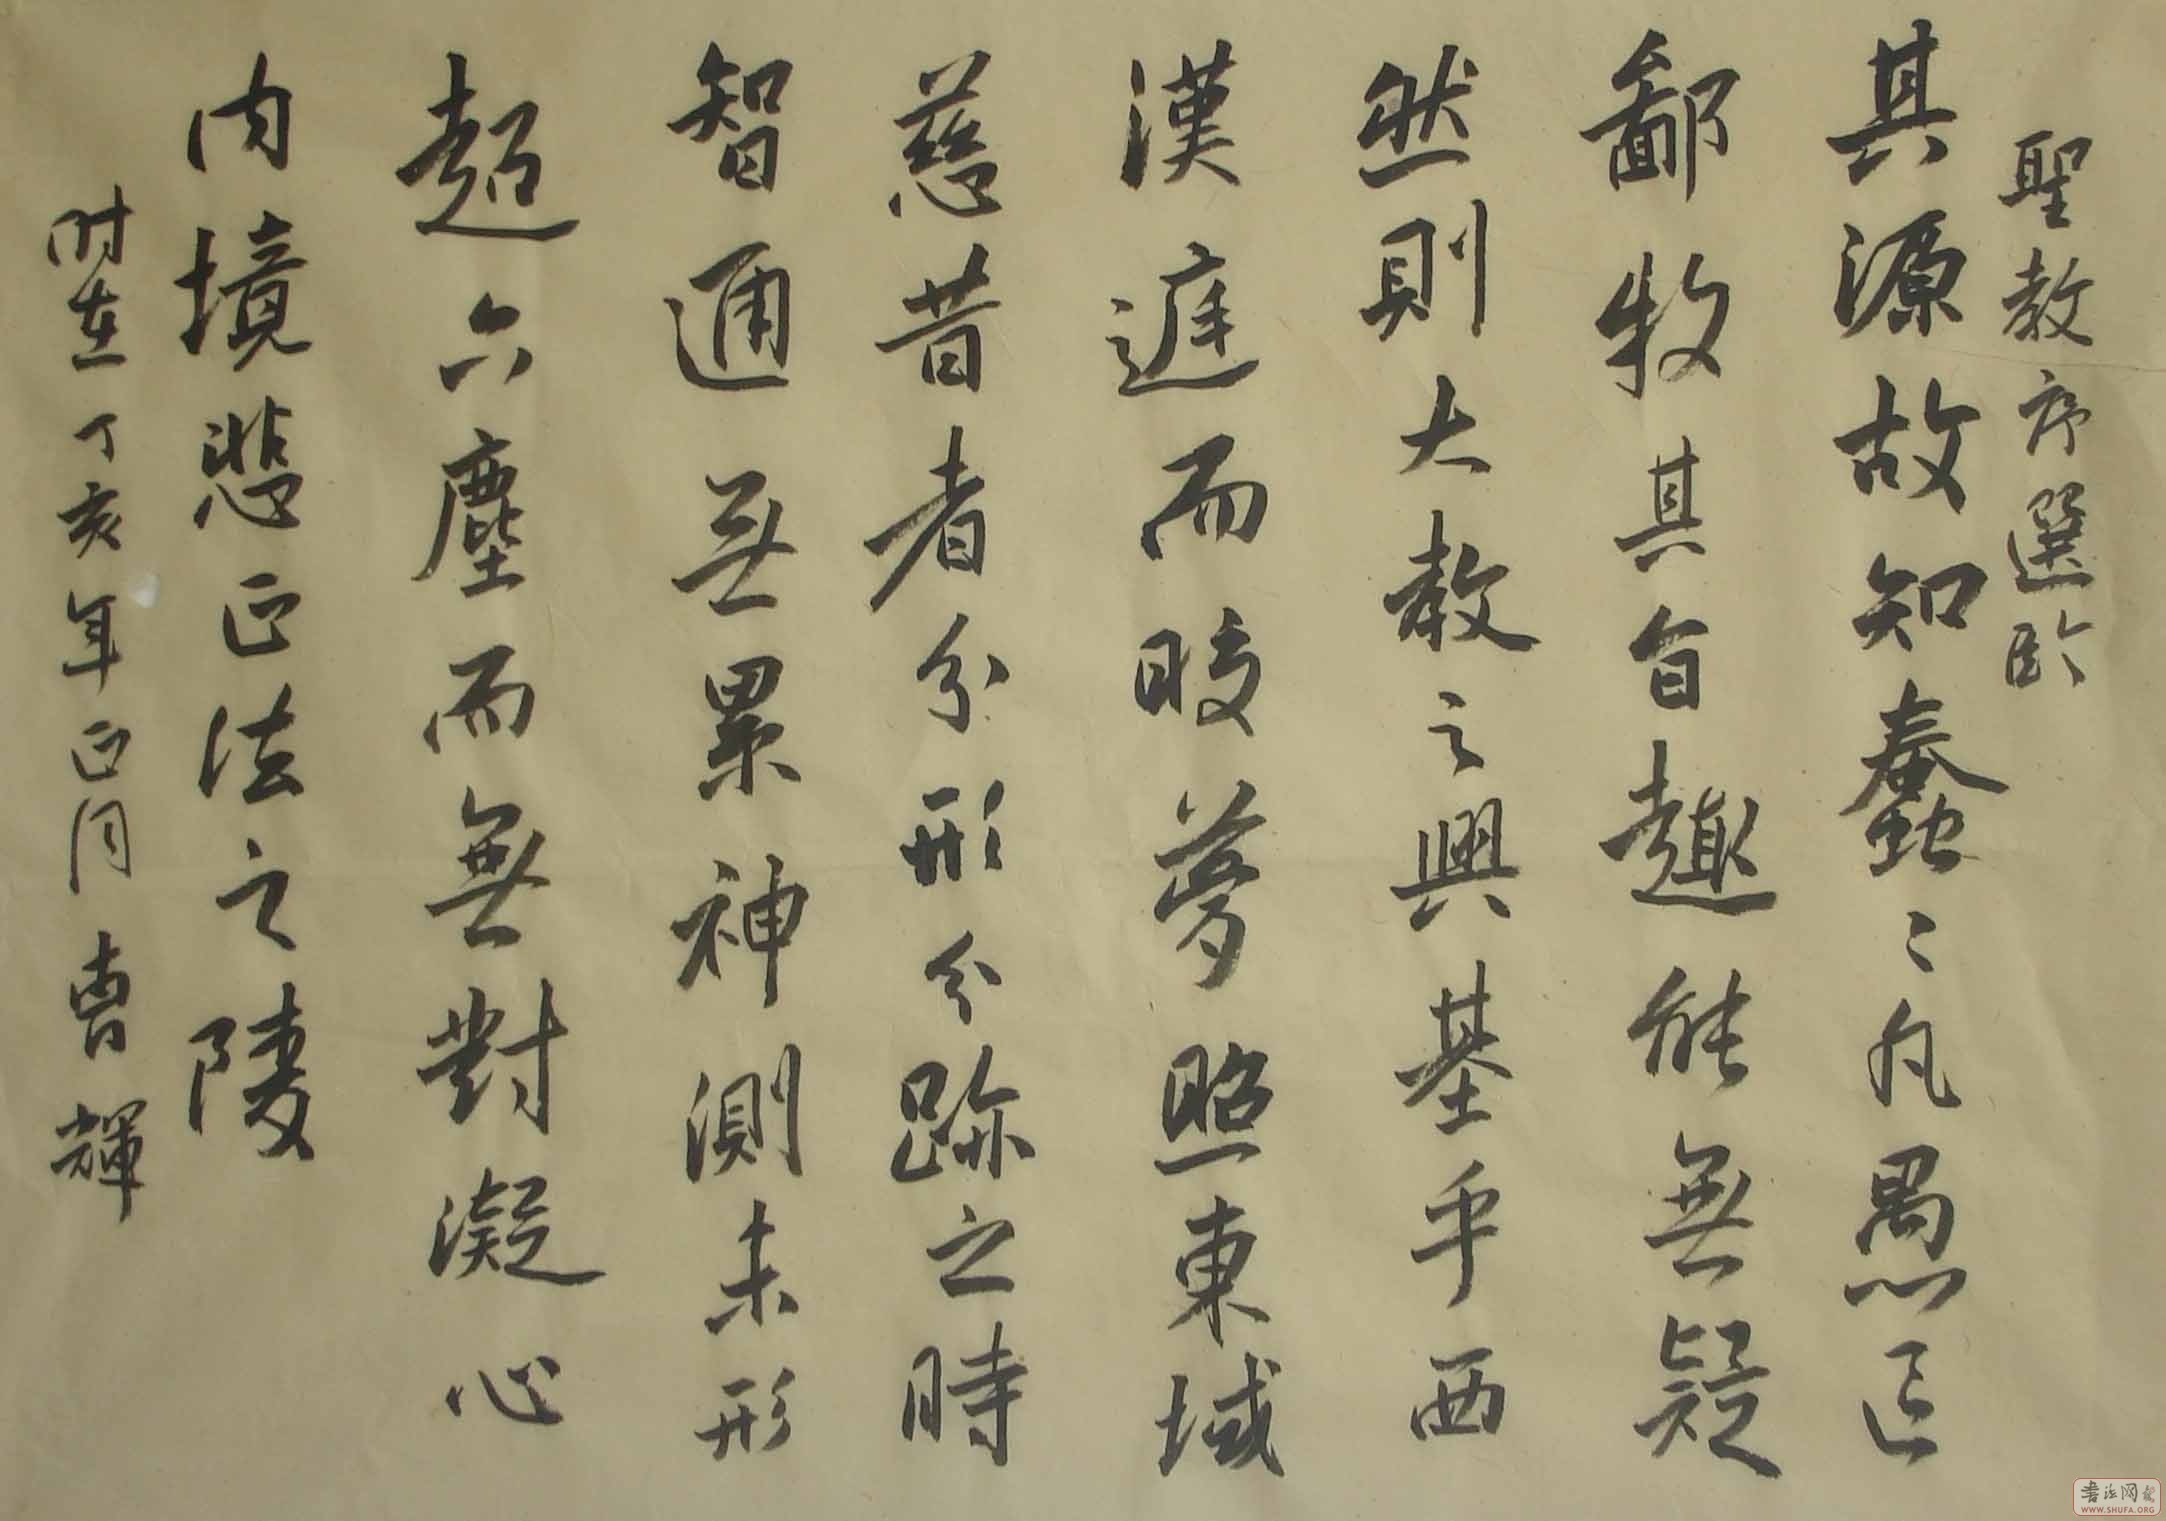 聖教序選臨
其源故知蠢〻凡愚區
鄙牧其旨趣能無疑
然則大教之興基乎西
漢遑而晈夢照東域
慈昔者分形分跡之時
智通無累神測未形
超六塵而無對凝心
内境悲正法之陵
时在丁亥年正月曹輝
書法网
WWW.SHUFA.ORG